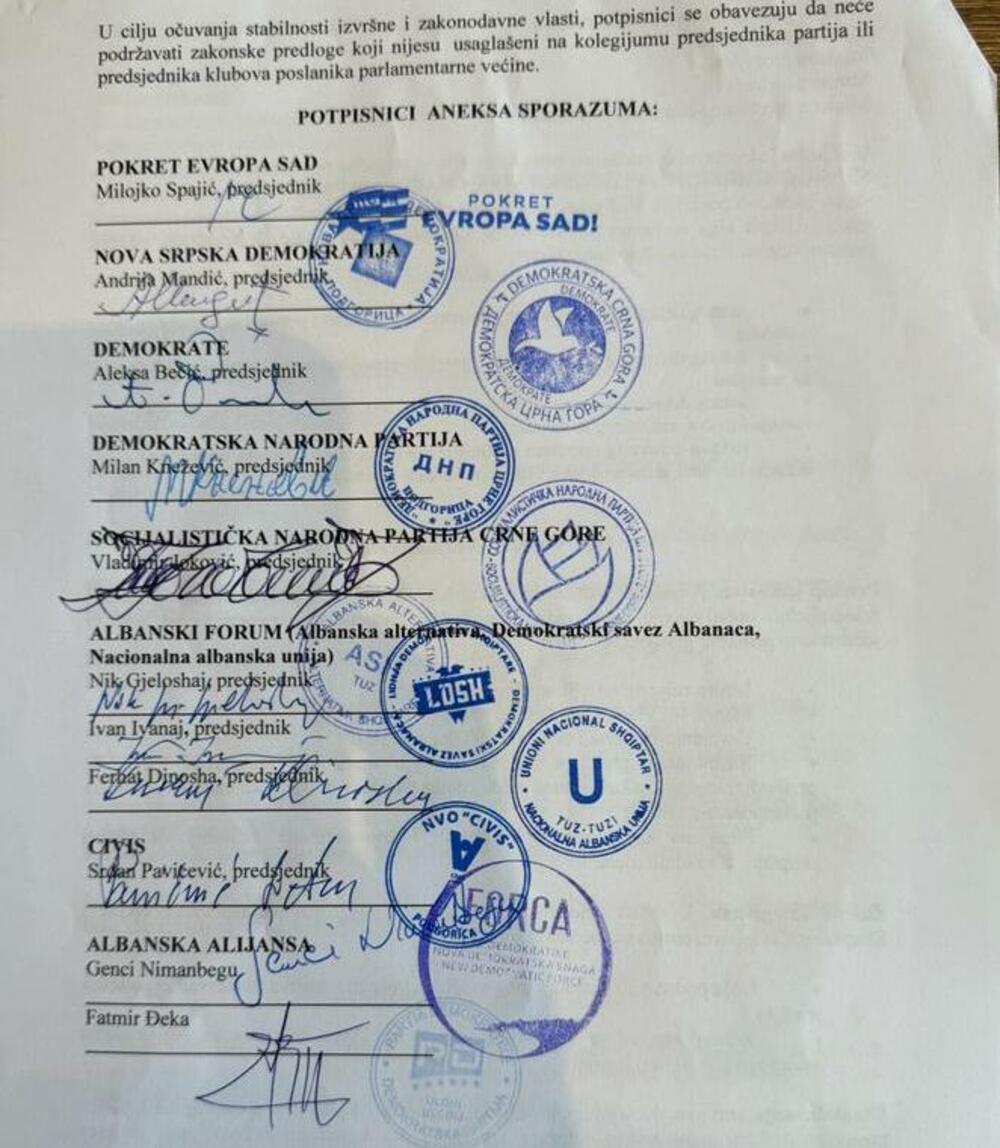 U cilju očuvanja stabilnosti izvršne i zakonodavne vlasti, potpisnici se obavezuju da neće
podržavati zakonske predloge koji nijesu usaglašeni na kolegijumu predsjednika partija ili
predsjednika klubova poslanika parlamentarne većine.
POTPISNICI ANEKSA SPORAZUMA:
POKRET EVROPA SAD
Milojko Spajić, predsjednik
POKRET
EVROPA SAD!
NOVA SRPSKA DEMOKRATIJA
Andrija Mandić, predsjednik
ПОДГОРИЦА
DEMOKRATSKA CRNA GORA
DEMOKRATE
ДЕМОКРАТСКА ЦРНА ГОРА
ДЕМОКРАТЕ
DEMOKRATE
Aleksa Bečić, predsjednik
DEMOKRATSKA NARODNA PARTIJA
Milan Knežević, predsjednik
ДНП
ПОДГОРИЦА
SOCIJALISTIČKA NARODNA PARTIJA CRNE GORE
Vladimir Joković, predsjednik
ALBANSKI FORUM (Albanska alternativa, Demokratski savez Albanaca,
Nacionalna albanska unija)
Nik Gjeloshaj, predsjednik
ALBANSKA ALTERNATIVA
AS
TUZ
LDSH
DEMOKRATSKI SAVEZ ALBANACA
Ivan Ivanaj, predsjednik
Ferhat Dinosha, predsjednik
UNIONI NACIONAL SHQIPTAR
U
TUZ-TUZI
NACIONALNA ALBANSKA UNIJA
CIVIS
Srđan Pavićević, predsjednik
NVO "CIVIS"
PODGORICA
ALBANSKA ALIJANSA
Genci Nimanbegu
FORCA
NOVA DEMOKRATSKA SNAGA
NEW DEMOCRATIC FORCE
Fatmir Đeka